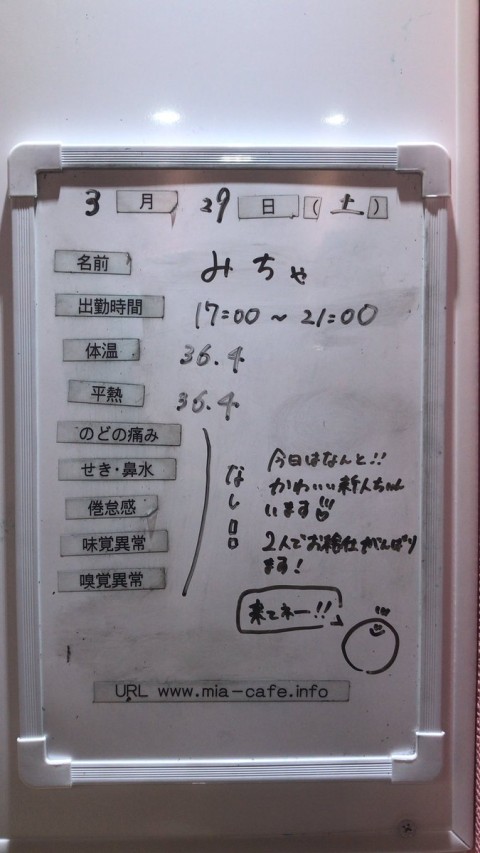 3月29日(土)
名前 みちゃ
出勤時間 17:00~21:00
体温 36.4
平熱 36.4
のどの痛み
せき・鼻水
倦怠感
味覚異常
嗅覚異常
なし
今日はなんと!!
かわいい新人ちゃん
います
2人でお給仕がんばり
ます!
来てネー!!
URL www.mia-cafe.info